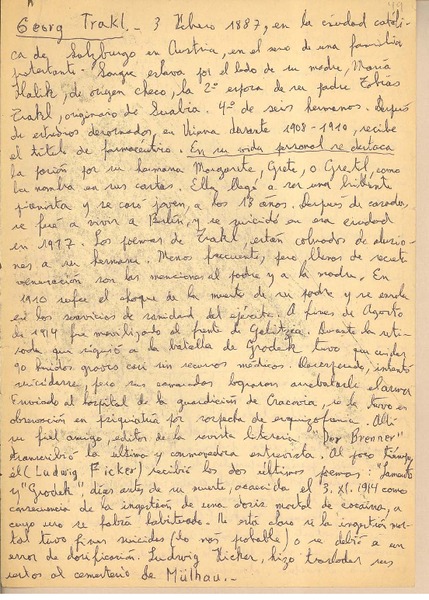 Georg Trakl.- 3 Febrero 1887, en la ciudad católi-
ca de Salzburgo en Austria, en el seno de una familia
protestante. Sangre eslava por el lado de su madre, María
Halik, de origen checo, la 2ª esposa de su padre Tobías
Trakl, originario de Suabia. 4º de seis hermanos. Después
de estudios desordenados, en Viena durante 1908-1910, recibe
el título de farmaceutico. En su vida personal se destaca
la pasión por su hermana Margarete, Grete, o Gretl, como
la nombra en sus cartas. Ella llegó a ser una brillante
pianista y se casó joven, a los años. Después de casada,
se fué a vivir a Berlín, y se suicidó en esa ciudad
en 1917. Los poemas de Trakl, están colmados de alusio-
nes a su hermana. Menos frecuente, pero llenas de secreta
veneración son las menciones al padre y a la madre. En
1910 sufre el choque de la muerte de su padre y se enrola
en los servicios de sanidad del ejército. A fines de Agosto
de 1914 fue movilizado al frente de Galitzia. Durante la reti-
rada que siguió a la batalla de Grodek tuvo que cuidar
90 heridos graves casi sin recursos médicos. Desesperado, intentó
suicidarse, pero sus camaradas lograron arrebatarle el arma.
Enviado al hospital de la guarnición de Cracovia, se lo tuvo en
observación en psiquiatría por sospecha de esquizofrenia. Allí
su fiel amigo, editor de la revista literaria "Der Brenner"
transcribió la última y conmovedora entrevista. Al poco tiempo,
él (Ludwig Ficker) recibió los dos últimos poemas: "Lamento"
y "Grodek", días antes de su muerte, acaecida el 3.XI.1914 como
consecuencia de la ingestión de una dosis mortal de cocaína, a
cuyo uso se había habituado. No está claro si la ingestión mor-
tal tuvo fines suicidas (lo más probable) o se debió a un
error de dosificación. Ludwig Ficker, hizo trasladar sus
restos al cementerio de Mülhau.-